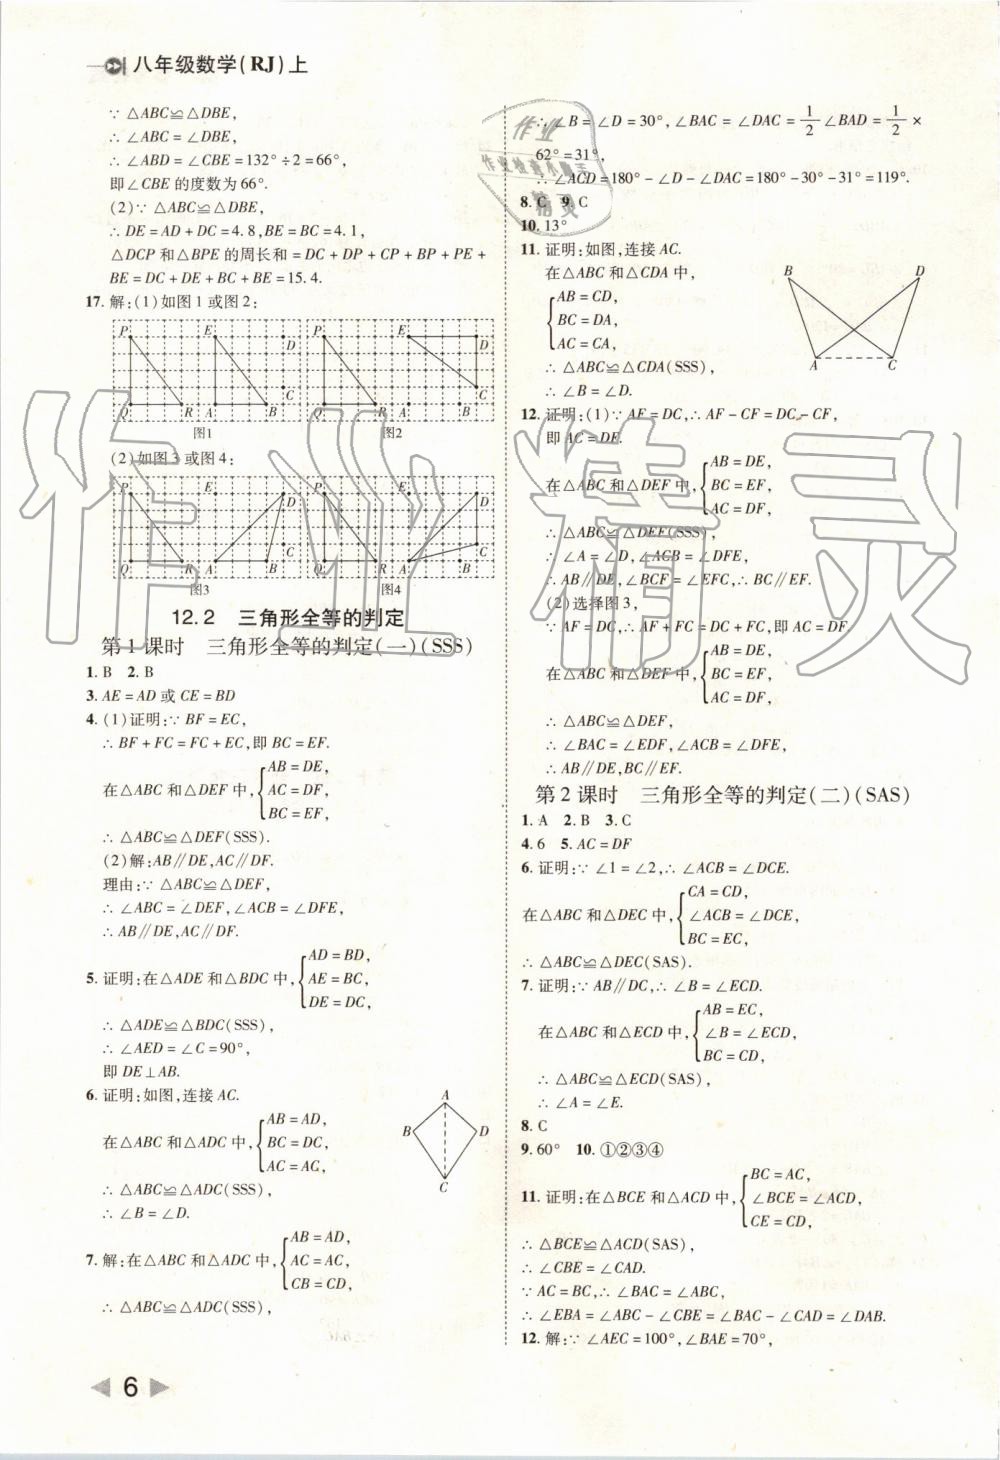 八年级数学(RJ)上
∵ △ABC≌△DBE,
∴ ∠ABC = ∠DBE,
∴ ∠ABD = ∠CBE = 132° ÷ 2 = 66°,
即∠CBE 的度数为 66°.
(2)∵ △ABC≌△DBE,
∴ DE = AD + DC = 4.8, BE = BC = 4.1,
△DCP 和△BPE 的周长和 = DC + DP + CP + BP + PE +
BE = DC + DE + BC + BE = 15.4.
17. 解:(1)如图 1 或图 2:
P E D P E D
C C
Q R A B Q R A B
图1 图2
(2)如图 3 或图 4:
P E D P E D
C C
Q R A B Q R A B
图3 图4
12.2 三角形全等的判定
第 1 课时 三角形全等的判定(一)(SSS)
1. B 2. B
3. AE = AD 或 CE = BD
4. (1)证明:∵ BF = EC,
∴ BF + FC = FC + EC,即 BC = EF.
AB = DE,
在△ABC 和△DEF 中, AC = DF,
BC = EF,
∴ △ABC≌△DEF(SSS).
(2)解:AB∥DE, AC∥DF.
理由:∵ △ABC≌△DEF,
∴ ∠ABC = ∠DEF, ∠ACB = ∠DFE,
∴ AB∥DE, AC∥DF.
AD = BD,
5. 证明:在△ADE 和△BDC 中, AE = BC,
DE = DC,
∴ △ADE≌△BDC(SSS),
∴ ∠AED = ∠C = 90°,
即 DE⊥AB.
6. 证明:如图,连接 AC.
AB = AD,
在△ABC 和△ADC 中, BC = DC,
AC = AC,
∴ △ABC≌△ADC(SSS),
∴ ∠B = ∠D.
A
B D
C
AB = AD,
7. 解:在△ABC 和△ADC 中, AC = AC,
CB = CD,
∴ △ABC≌△ADC(SSS),
∴ ∠B = ∠D = 30°, ∠BAC = ∠DAC = 1/2 ∠BAD = 1/2 ×
62° = 31°,
∴ ∠ACD = 180° − ∠D − ∠DAC = 180° − 30° − 31° = 119°.
8. C 9. C
10. 13°
11. 证明:如图,连接 AC.
在△ABC 和△CDA 中,
AB = CD,
BC = DA,
AC = CA,
∴ △ABC≌△CDA(SSS),
∴ ∠B = ∠D.
B D
A C
12. 证明:(1)∵ AF = DC,∴ AF − CF = DC − CF,
即 AC = DF.
AB = DE,
在△ABC 和△DEF 中, BC = EF,
AC = DF,
∴ △ABC≌△DEF(SSS),
∴ ∠A = ∠D, ∠ACB = ∠DFE,
∴ AB∥DE, ∠BCF = ∠EFC,∴ BC∥EF.
(2)选择图 3,
∵ AF = DC,∴ AF + FC = DC + FC,即 AC = DF.
AB = DE,
在△ABC 和△DEF 中, BC = EF,
AC = DF,
∴ △ABC≌△DEF,
∴ ∠BAC = ∠EDF, ∠ACB = ∠DFE,
∴ AB∥DE, BC∥EF.
第 2 课时 三角形全等的判定(二)(SAS)
1. A 2. B 3. C
4. 6 5. AC = DF
6. 证明:∵ ∠1 = ∠2,∴ ∠ACB = ∠DCE.
CA = CD,
在△ABC 和△DEC 中, ∠ACB = ∠DCE,
BC = EC,
∴ △ABC≌△DEC(SAS).
7. 证明:∵ AB∥DC,∴ ∠B = ∠ECD.
AB = EC,
在△ABC 和△ECD 中, ∠B = ∠ECD,
BC = CD,
∴ △ABC≌△ECD(SAS),
∴ ∠A = ∠E.
8. C
9. 60° 10. ①②③④
BC = AC,
11. 证明:在△BCE 和△ACD 中, ∠BCE = ∠ACD,
CE = CD,
∴ △BCE≌△ACD(SAS),
∴ ∠CBE = ∠CAD.
∵ AC = BC,∴ ∠BAC = ∠ABC,
∴ ∠EBA = ∠ABC − ∠CBE = ∠BAC − ∠CAD = ∠DAB.
12. 解:∵ ∠AEC = 100°, ∠BAE = 70°,
6
作业精灵